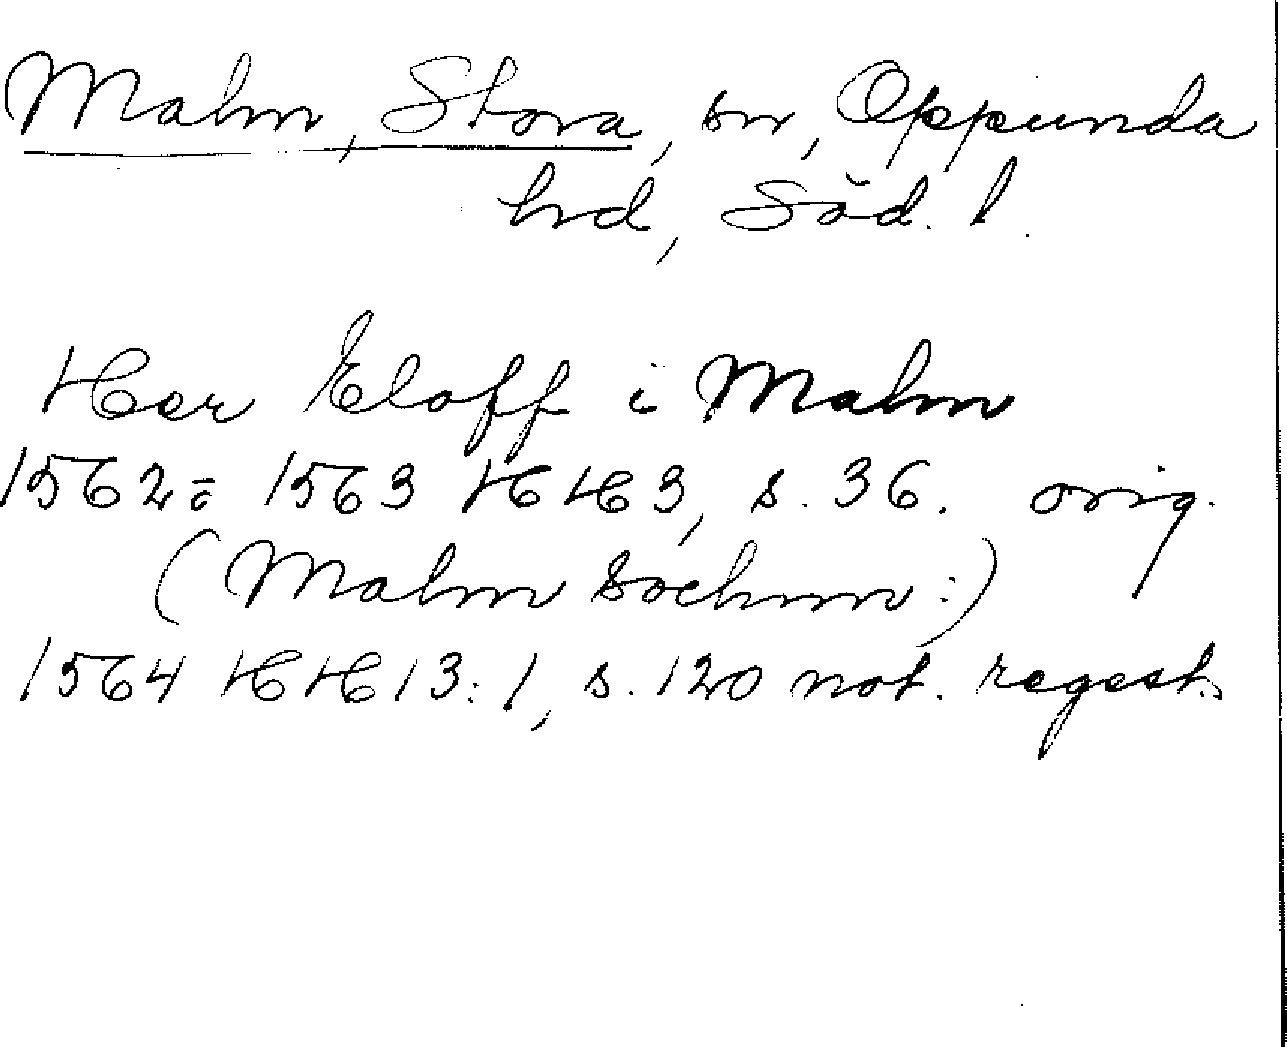 Malm, Stora, sn, Oppunda
hd, Söd. l.
Her Eloff i Malm
1562 = 1563 HH 3, s. 36. orig.
(Malm sochnn:)
1564 HH 13:1, s. 120 not. regest.